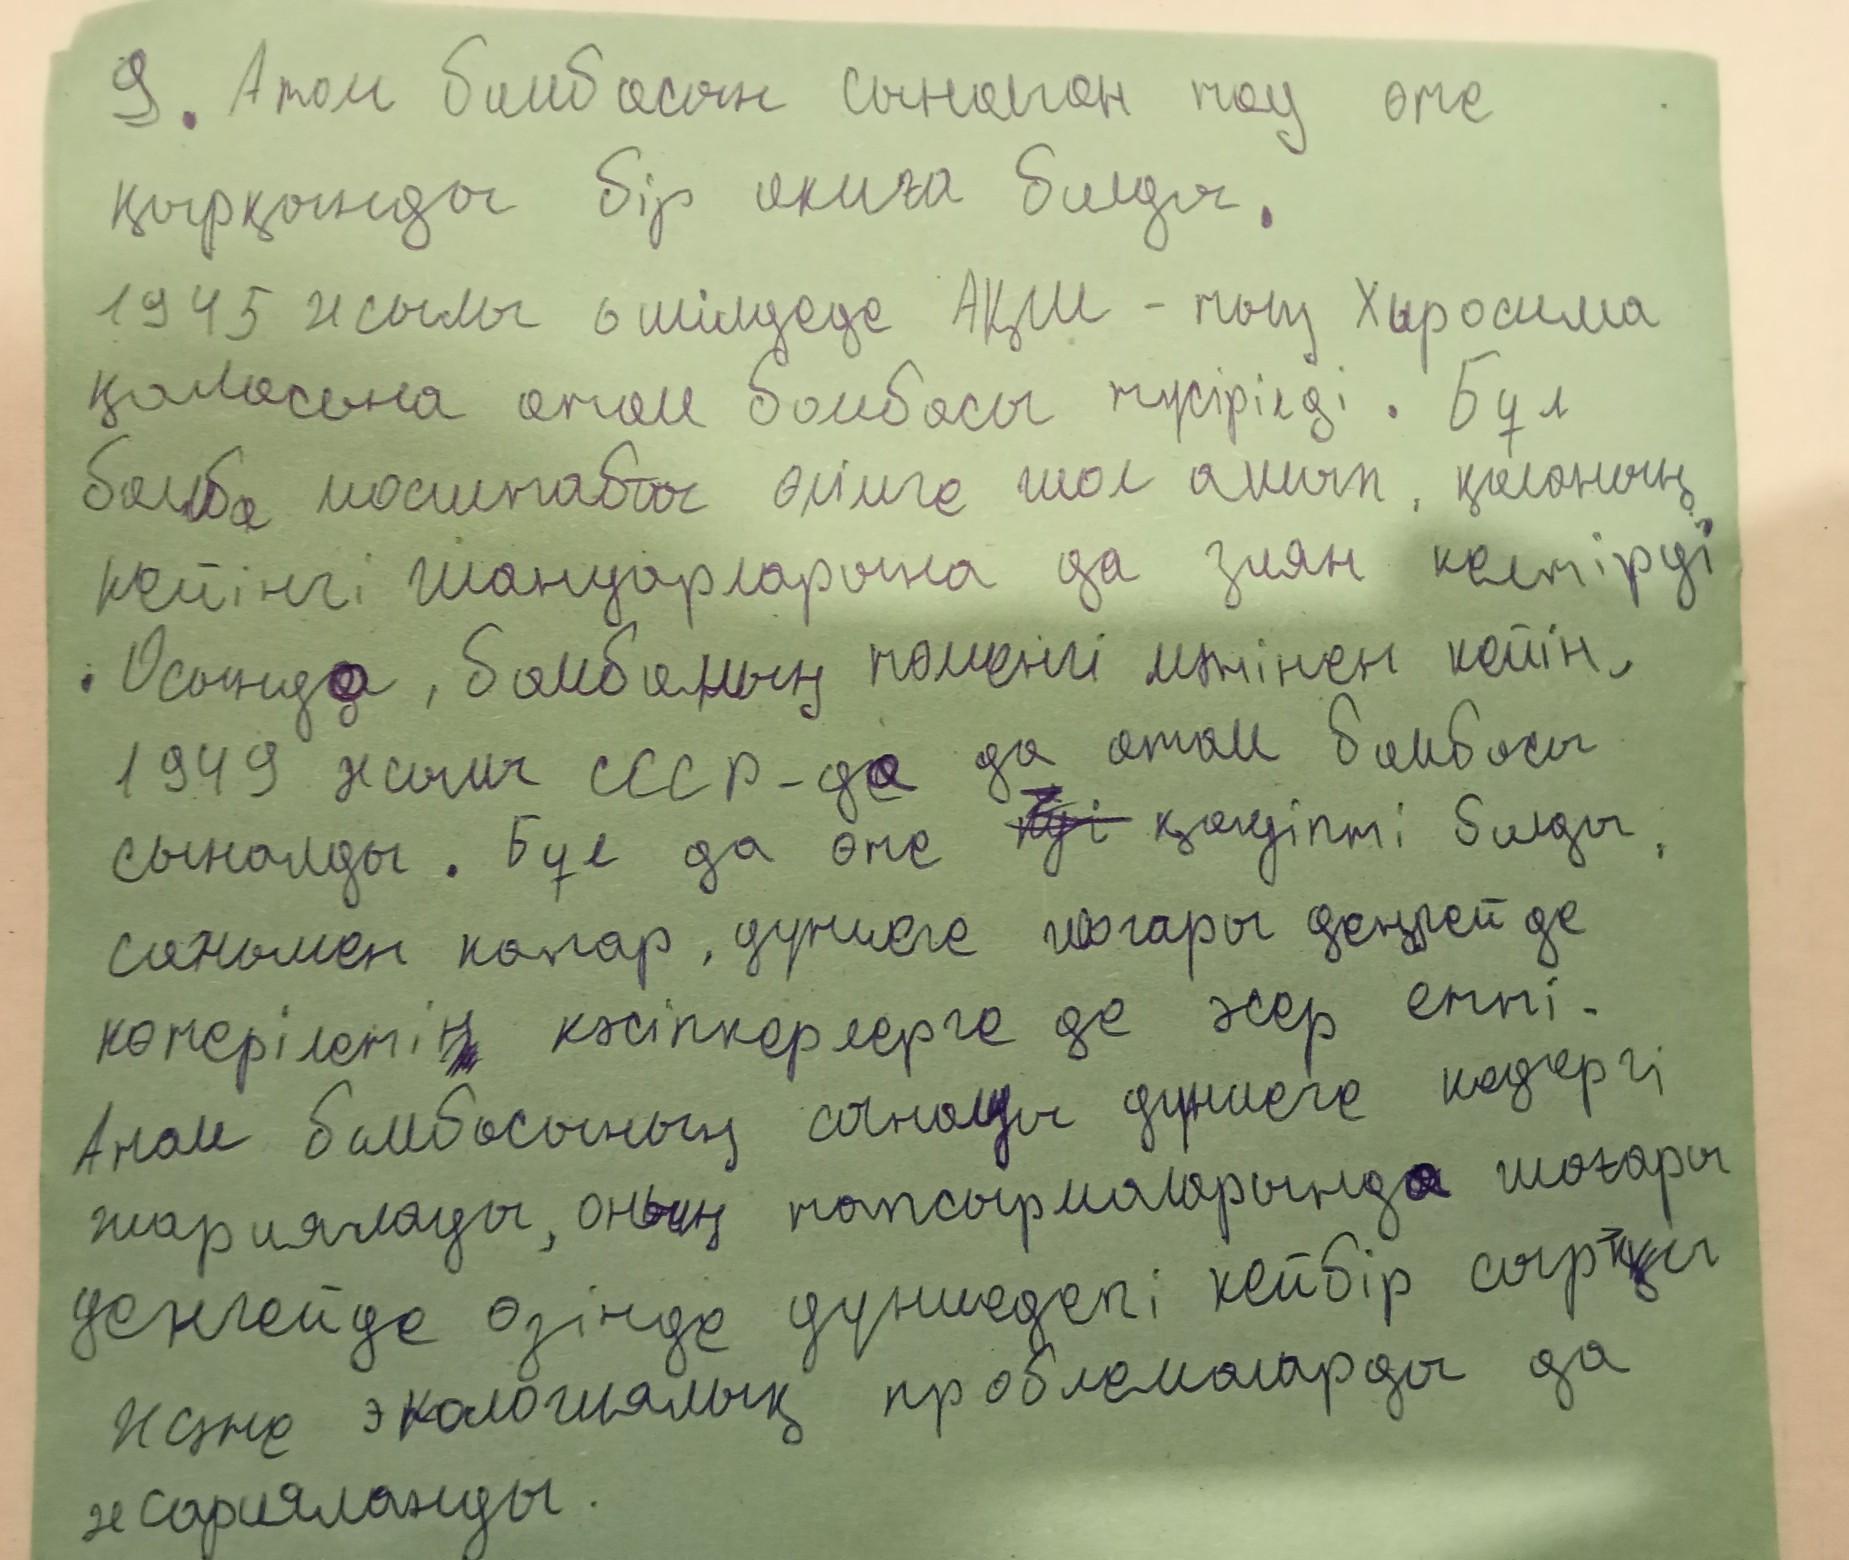 9. Атом бомбасын сынаған тау өте
қырқынды бір оқиға болды.
1945 жылы шілдеде АҚШ-тың Хыросима
қаласына атом бомбасы түсірілді. Бұл
бомба масштабты өлімге жол ашып, қаланың
кейінгі шануарларына да зиян келтірді
. Осында, бомбаның төменгі мәнінен кейін,
1949 жылы СССР-да да атом бомбасы
сыналды. Бұл да өте қауіпті болды,
сонымен катар, дүниеге жогары деңгейде
көтерілетін кәсіпкерлерге де әсер етті.
Атом бомбасының сыналуы дүниеге кедергі
жариялады, оның тапсырмаларында жоғары
денгейде өзінде дүниедегі кейбір сыртқы
және экологиялық проблемаларды да
жарияланды.